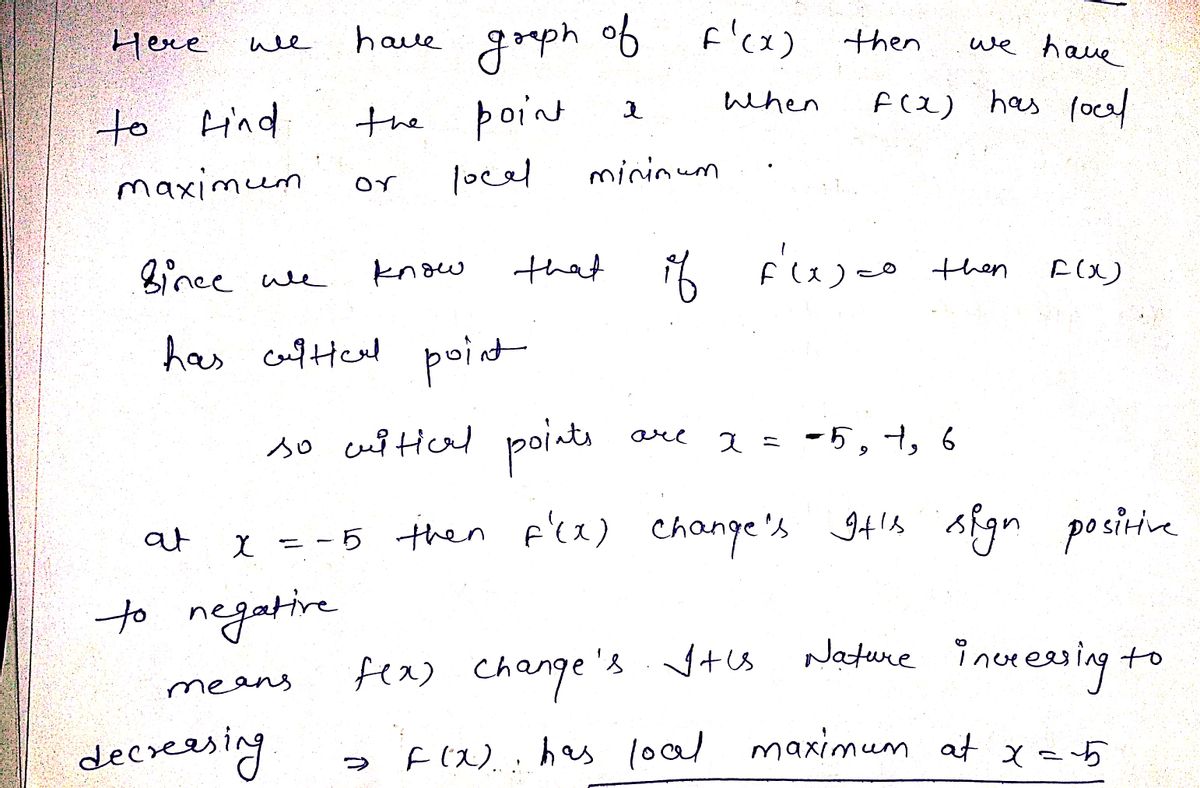 Here we have graph of f'(x) then we have
to find the point x when f(x) has local
maximum or local mininum .
Since we know that if f'(x)=0 then f(x)
has critical point
so critical points are x = -5, -1, 6
at x = -5 then f'(x) change's It's sign positive
to negative
means f(x) change's It's Nature increasing to
decreasing ⇒ f(x) has local maximum at x = -5